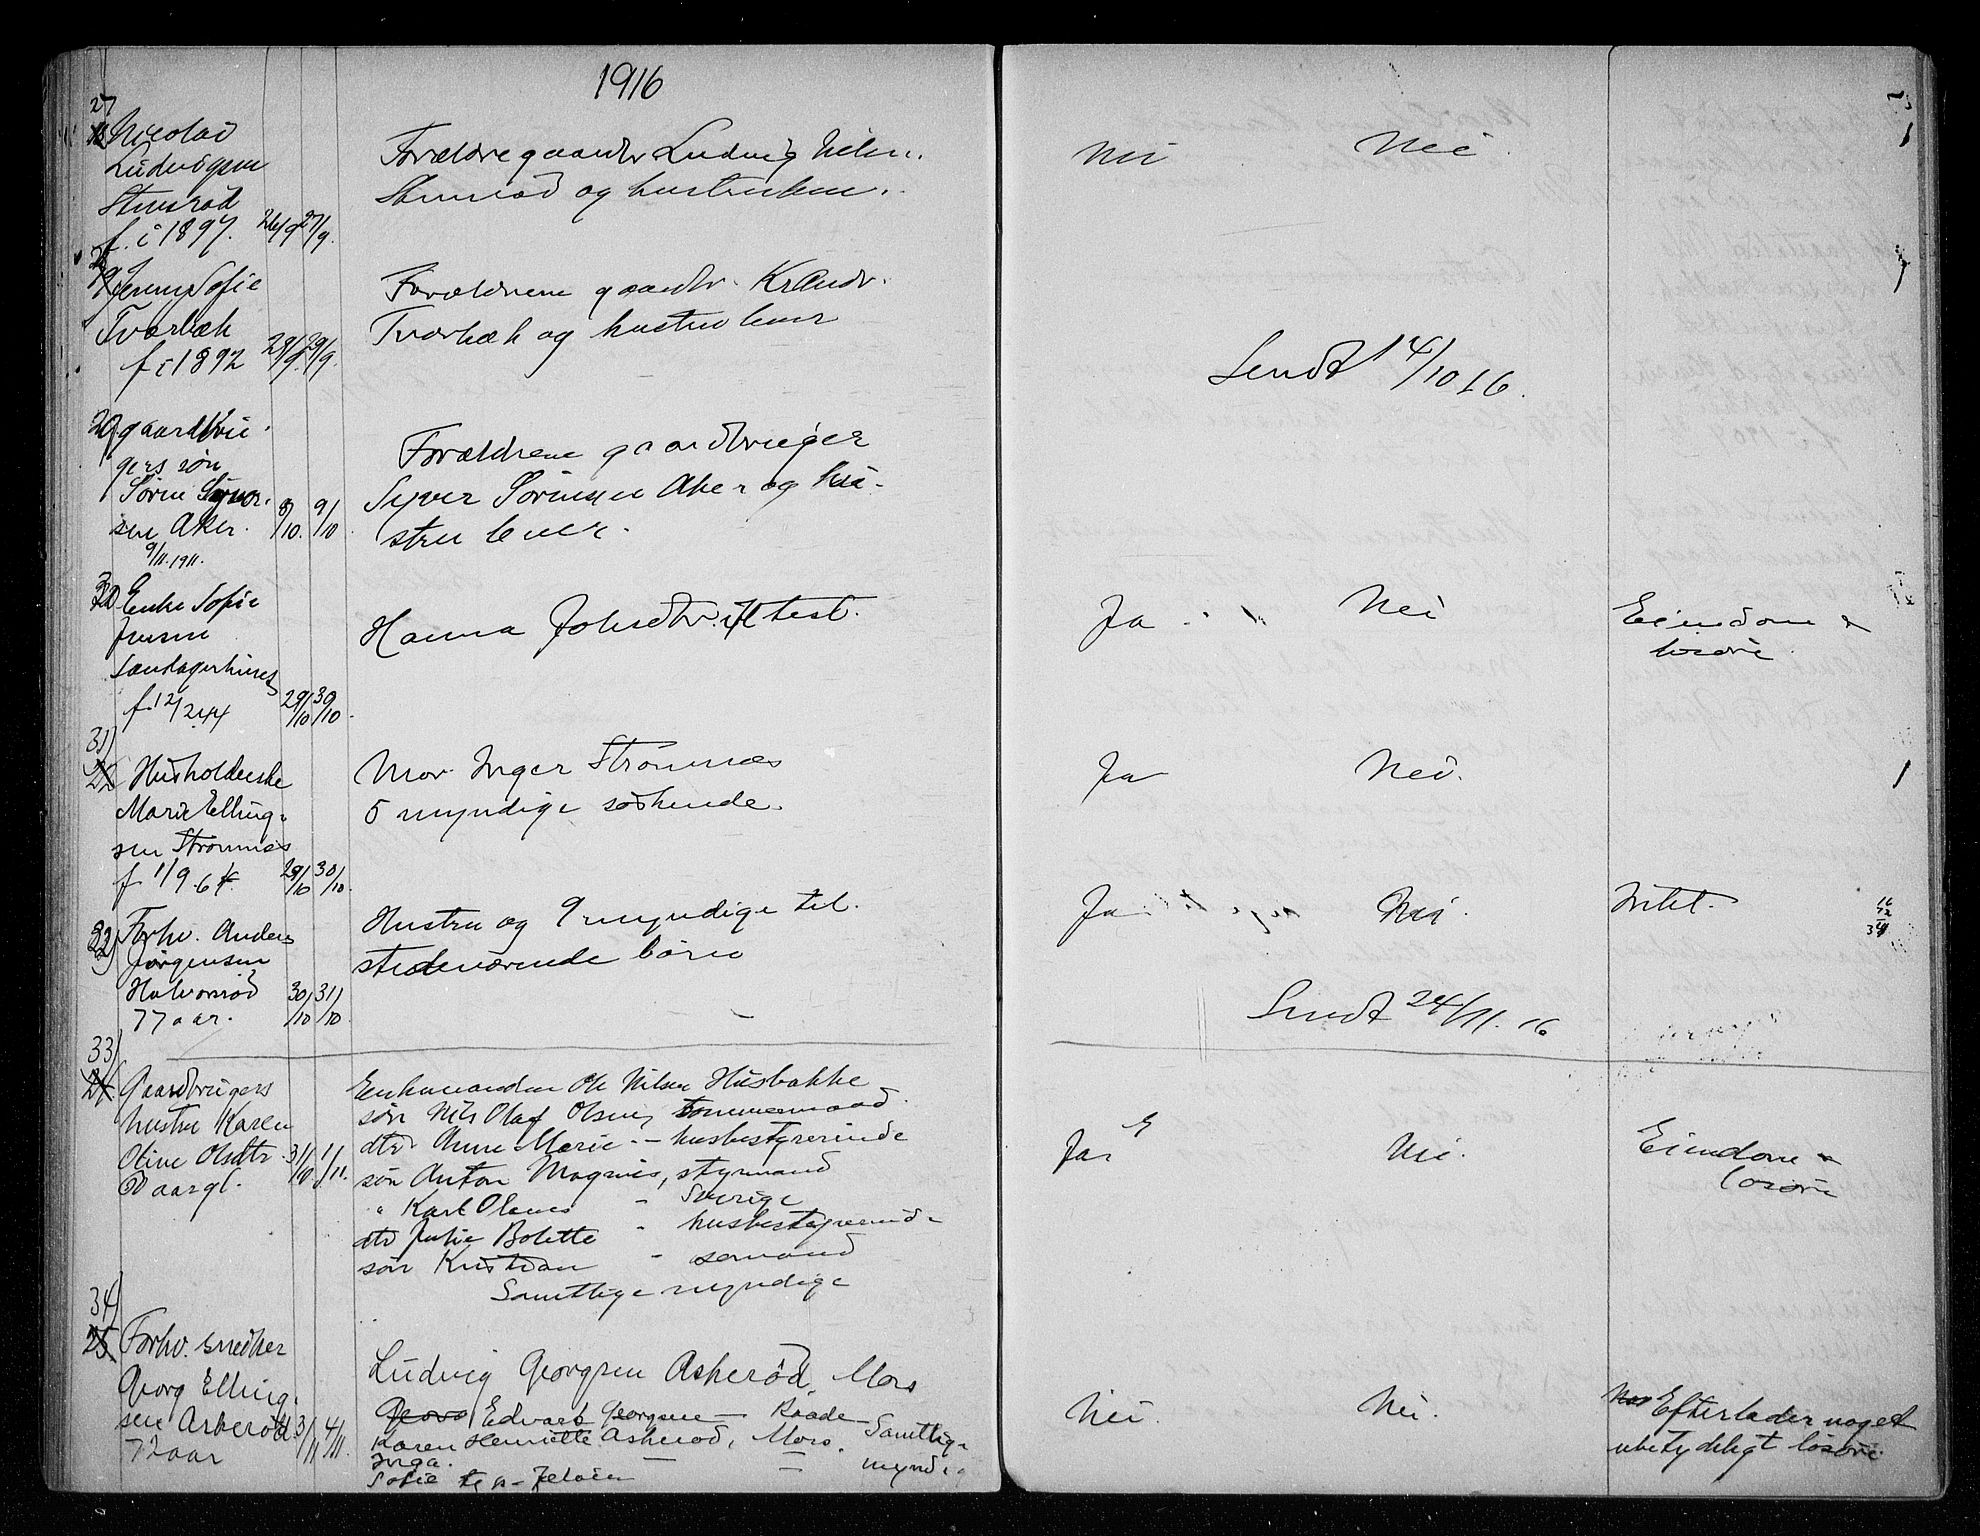 1916
27
Nicolai
Ludvigsen
Stensrød
f. i 1897. 26/9 27/9.
Forældre gaardbr Ludvig Nils..
Stensrød og hustru lever.
Nei Nei
Jenny Sofie
Tværbæk
f. i 1892 29/9. 29/9.
Forældrene gaardbr. Kr Andr.
Tværbæk og hustru lever
Sendt 14/10 16.
29 gaardbru-
gers søn
Søren Syver.
sen Aker. 8/10. 9/10
9/11.1911.
Forældrene gaardbruger
Syver Sørensen Aker og hu-
stru lever.
30 Enke Sofie
Jensen
f. 12/2 44 29/10 30/10.
Hanna Johsdtr. ift test.
Ja Nei Eiendom &
løsøre
31)
22 Husholderske
Marie Elling-
sen Strømnes
f 1/9 64. 29/10 30/10.
Mor Inger Strømnes
5 myndige søskende.
Ja Nei.
32) Forhv. Anders
Jørgensen
Halvorsrød
77 aar. 30/10 31/10
Hustru og 9 myndige til.
stedeværende børn
Ja Nei. Intet.
Sendt 24/11. 16
33)
24 Gaardbrugers
hustru Karen
Oline Olsdtr 31/10 1/11.
aargl.
Enkemanden Ole Nilsen Husbakke
søn Nils Olaf Olsen, tømmermand
dtr Anne Marie - husbestyrerinde
søn Anton Magnus, styrmand
" Karl Olaves - Sverige
dtr Julie Bolette - husbestyrerinde
søn Kristian - sømand
Samtlige myndige
Ja Nei. Eiendom &
løsøre
34)
25. Forhv. snedker
Georg Elling-
sen Askerød. 3/11 4/11.
72 aar
Ludvig Georgsen Askerød, Moss
Georg Edvart Georgsen - Raade - Samtlige
Karen Henriette Askerød, Moss. myndig
Inga. — =
Sofie - Jeløien
Nei. Nei. Efterlader noget
ubetydeligt løsøre